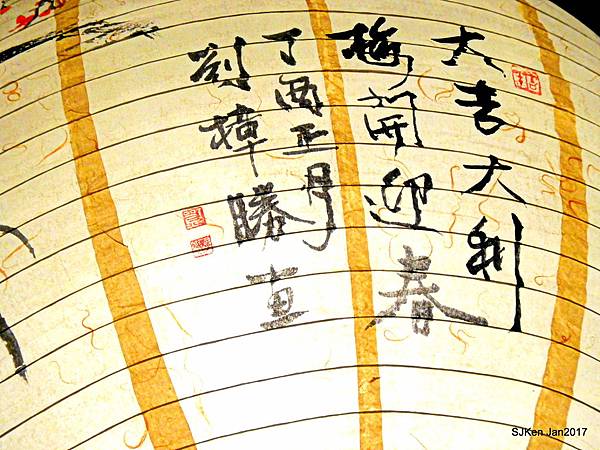 大吉大利
梅開迎春
丁酉正月
劉樟勝畫
SJKen Jan2017